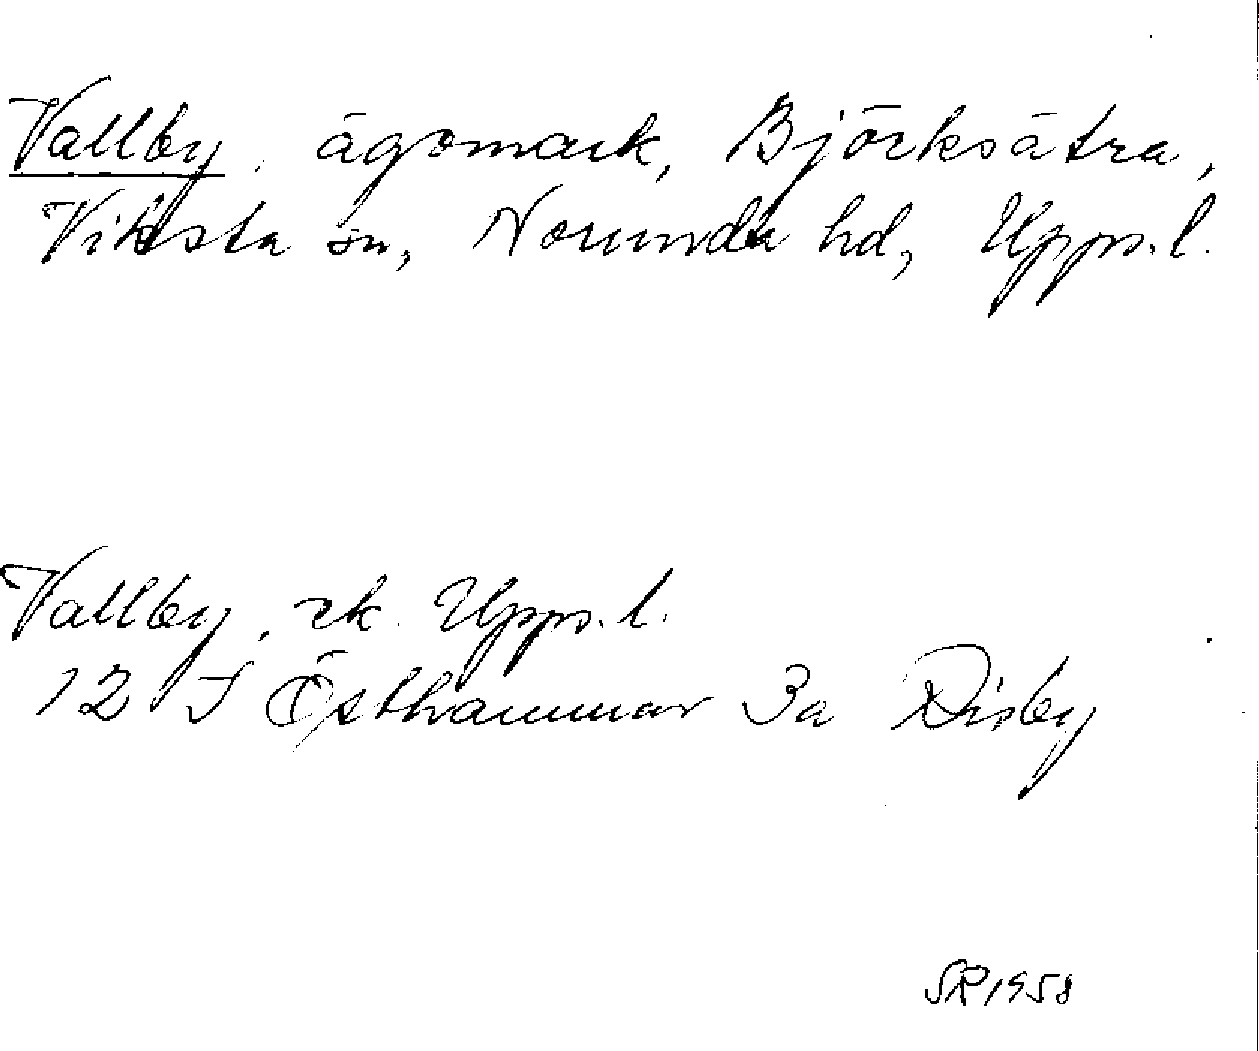 Vallby, ägomark, Björksätra,
Viksta sn, Norunda hd, Upps. l.
Vallby, ek. Upps. l.
12 I Östhammar 3a Risby
SR 1958